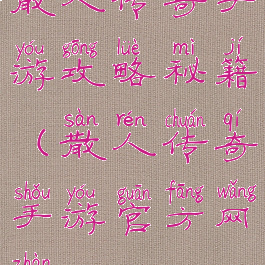 散人传奇手
yóu gōng luè mì jí
游攻略秘籍
sàn rén chuán qí
（散人传奇
shǒu yóu guān fāng wǎng
手游官方网
zhàn